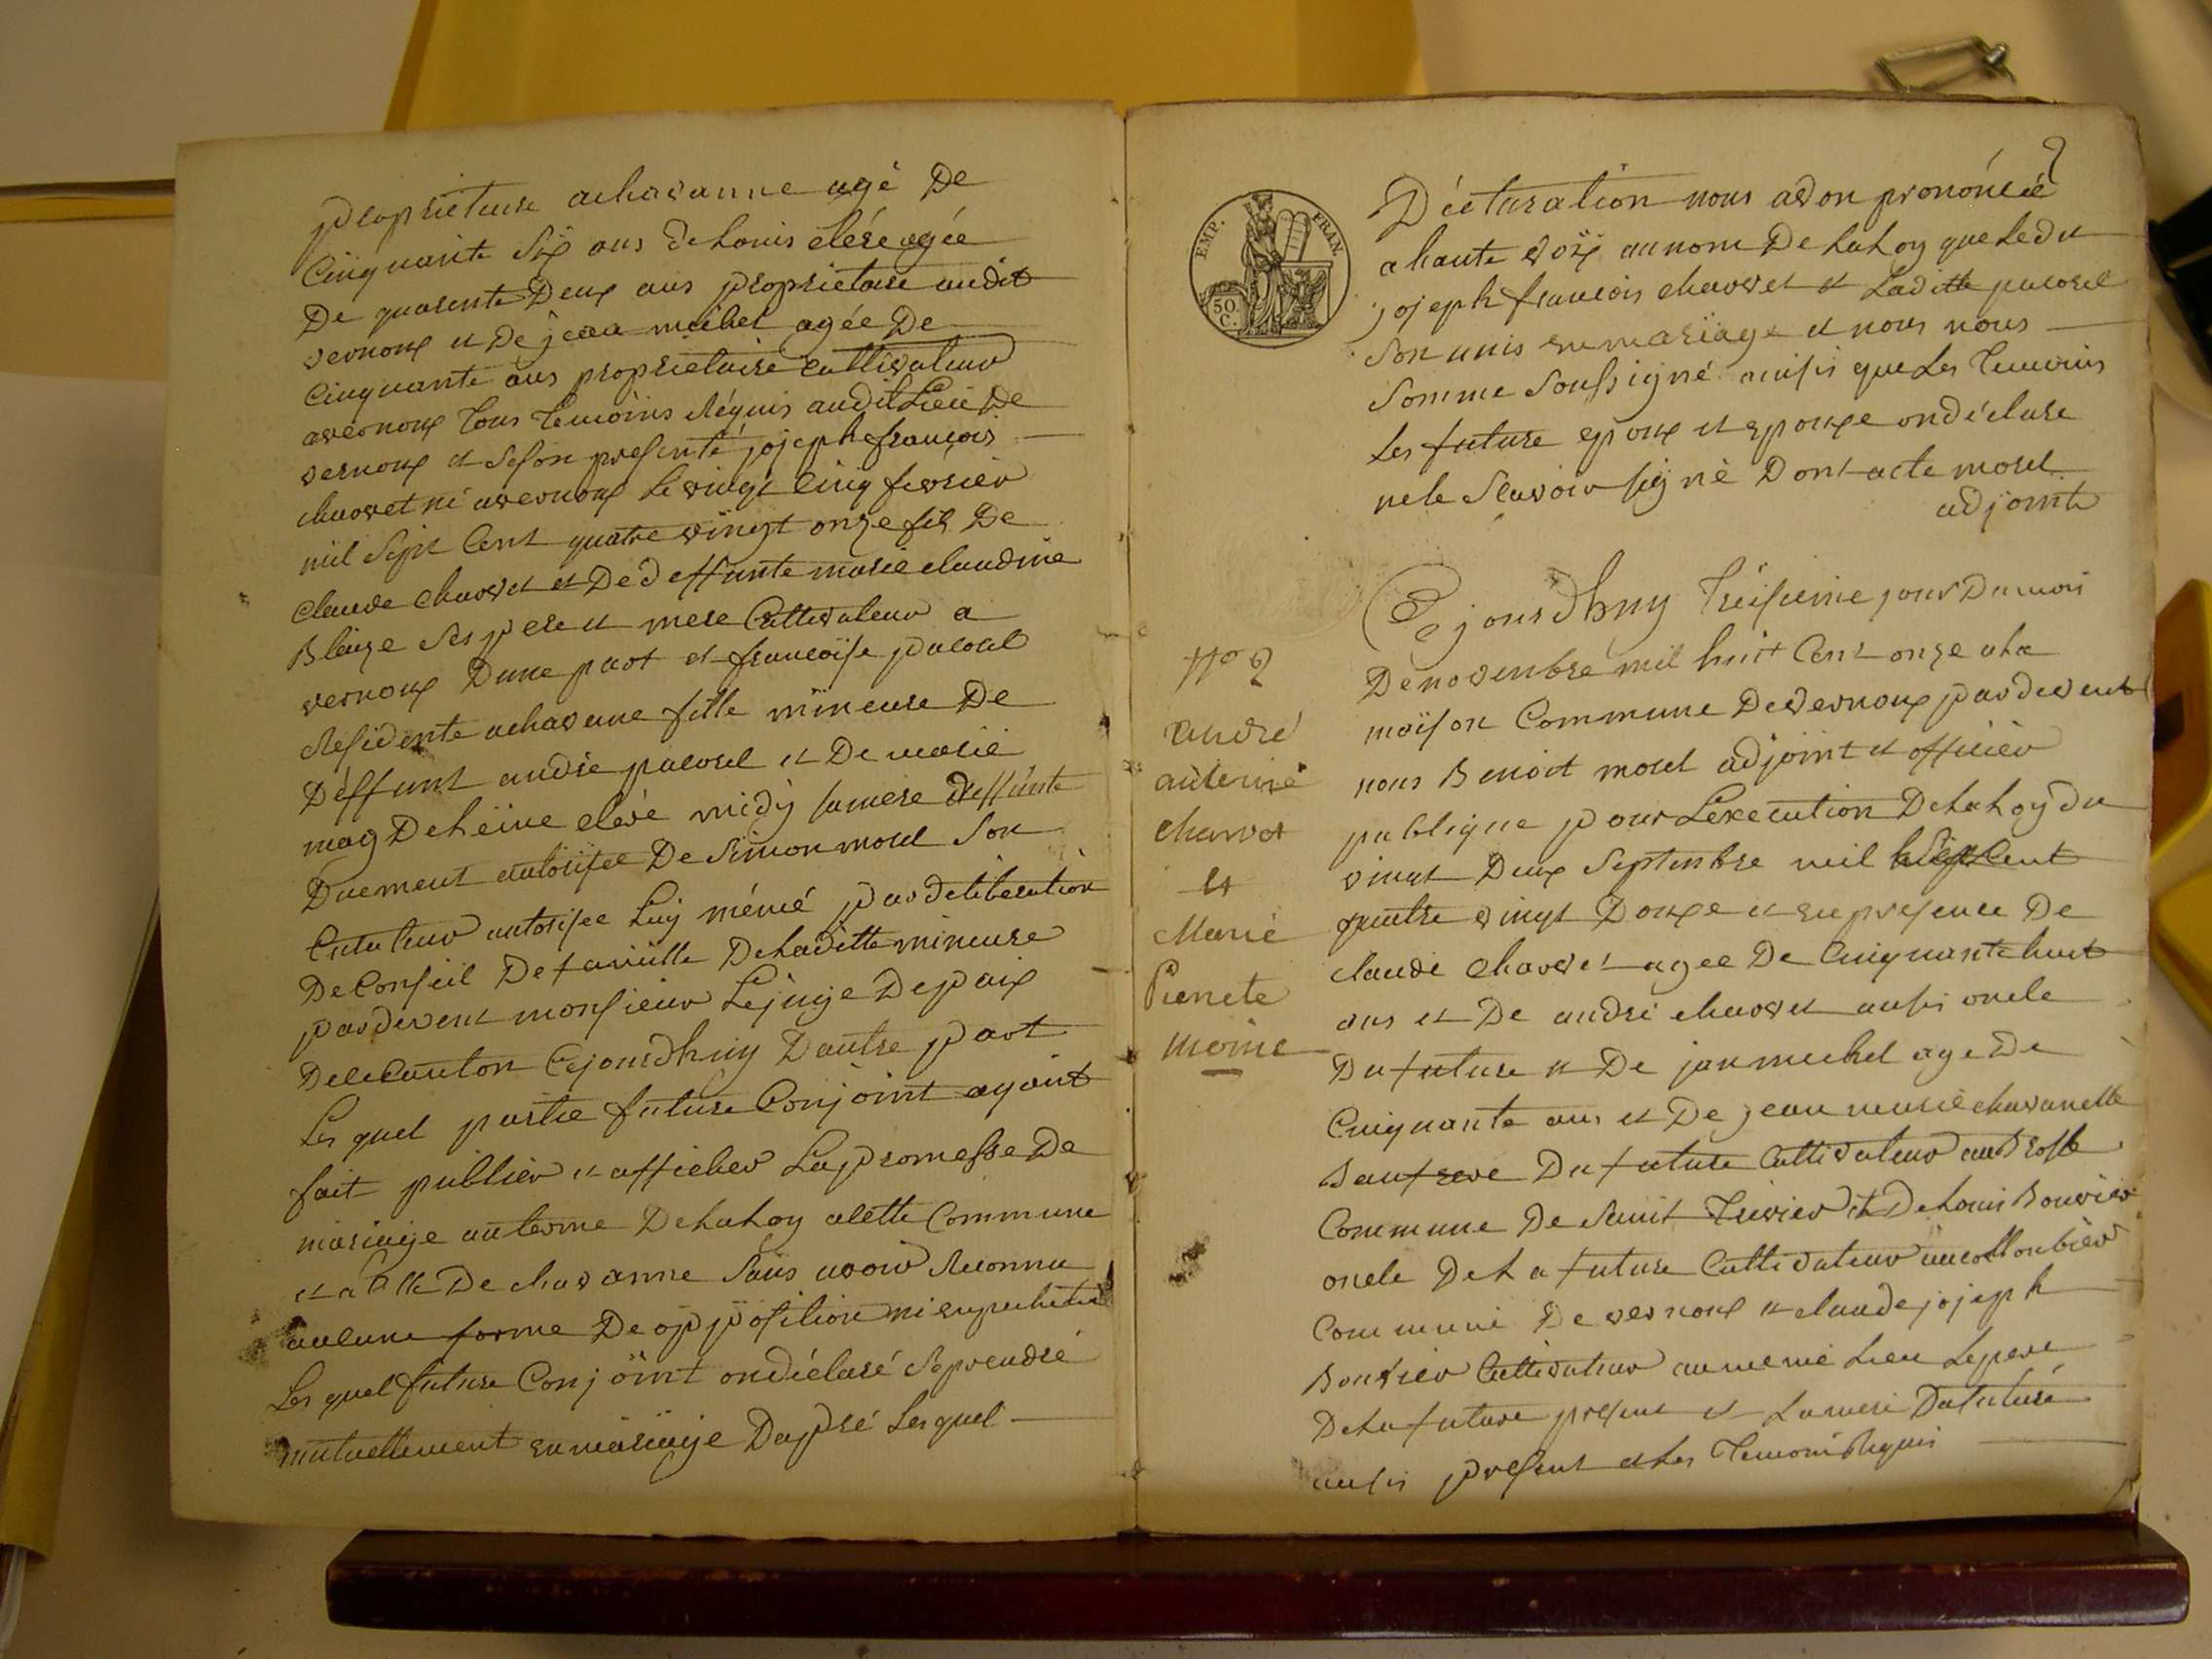 proprietere achavanne agé De
Cinquante Six ans de Louis eléré agée
De quarente Deux ans proprietaire audit
vernoux et De jean michel agée De
Cinquante ans proprietaire Cultivateur
avernoux Tous Temoins Réquis audit Lieu De
vernoux et Seson presenté jojeph françois
charvet né avernoux le vingt Cinq fevrier
mil Sept Cent quatre vingt onze fils De
Claude Charvet et De deffunte marie claudine
Blaize Ses pere et mere Cultivateur a
vernoux Dune part et françoise pacorel
Residente achavane fille mineure De
Déffunt andre pacorel et De marie
magDeleine elevé midÿ samere deffunte
Duement autorisee De Simon morel Son
Cutateur autorisee Luÿ mémé par deliberation
De Conseil De famille De Laditte mineure
pardevent monsieur Lejuge Depaix
Dele Canton Cejourdhuy Dautre part
Lesquel partie future Conjoint ayant
fait publier et afficher Lapromesse De
mariage auterme DeLaLoy alette Commune
et a telle De chavanne Sans avoir Reconnu
aucune forme De opposition ni
Lesquel future Conjoint ondéclaré Seprendre
mutuellement enmariage Daprè Lesquel
2
EMP. FRAN.
50 C.
Déclaration nous avon prononcée
a haute voix aunom De LaLoy que Ledit
jojeph françois charvet et Laditte pacorel
Son unis enmariage et nous nous
Somme Soussigné ainsi que Les Temoins
Les future epoux et epouxe ondéclare
nele Scavoir signé Dont acte morel
adjoint
No 2
André
anterme
charvet
et
Marie
Pierrete
moine
Cejourdhuy Treisieme jour Du mois
De novenbre mil huit Cent onze a la
maison Commune Devernoux pardevent
nous Benoit morel adjoint et officier
publique pour Lexecution DeLaLoy du
vingt Deux Septenbre mil Sept Cent
quatre vingt Douxe et enpresence De
claude Charvet agee De Cinquante huit
ans et De andre charvet ausis oncle
Dufuture et De jan michel age De
Cinquante ans et De jean marie chavanelle
Beaufrere Dufuture Cultivateur au
Commune De Saint Trivier et De Louis Bouvier
oncle De La future Cultivateur au Collonbier
Commune De vernoux et claude jojeph
Bouvier Cultivateur aumeme Lieu Lepere
DeLafuture present et Lamere Dufuture
ausis present et Les Temoins Réquis